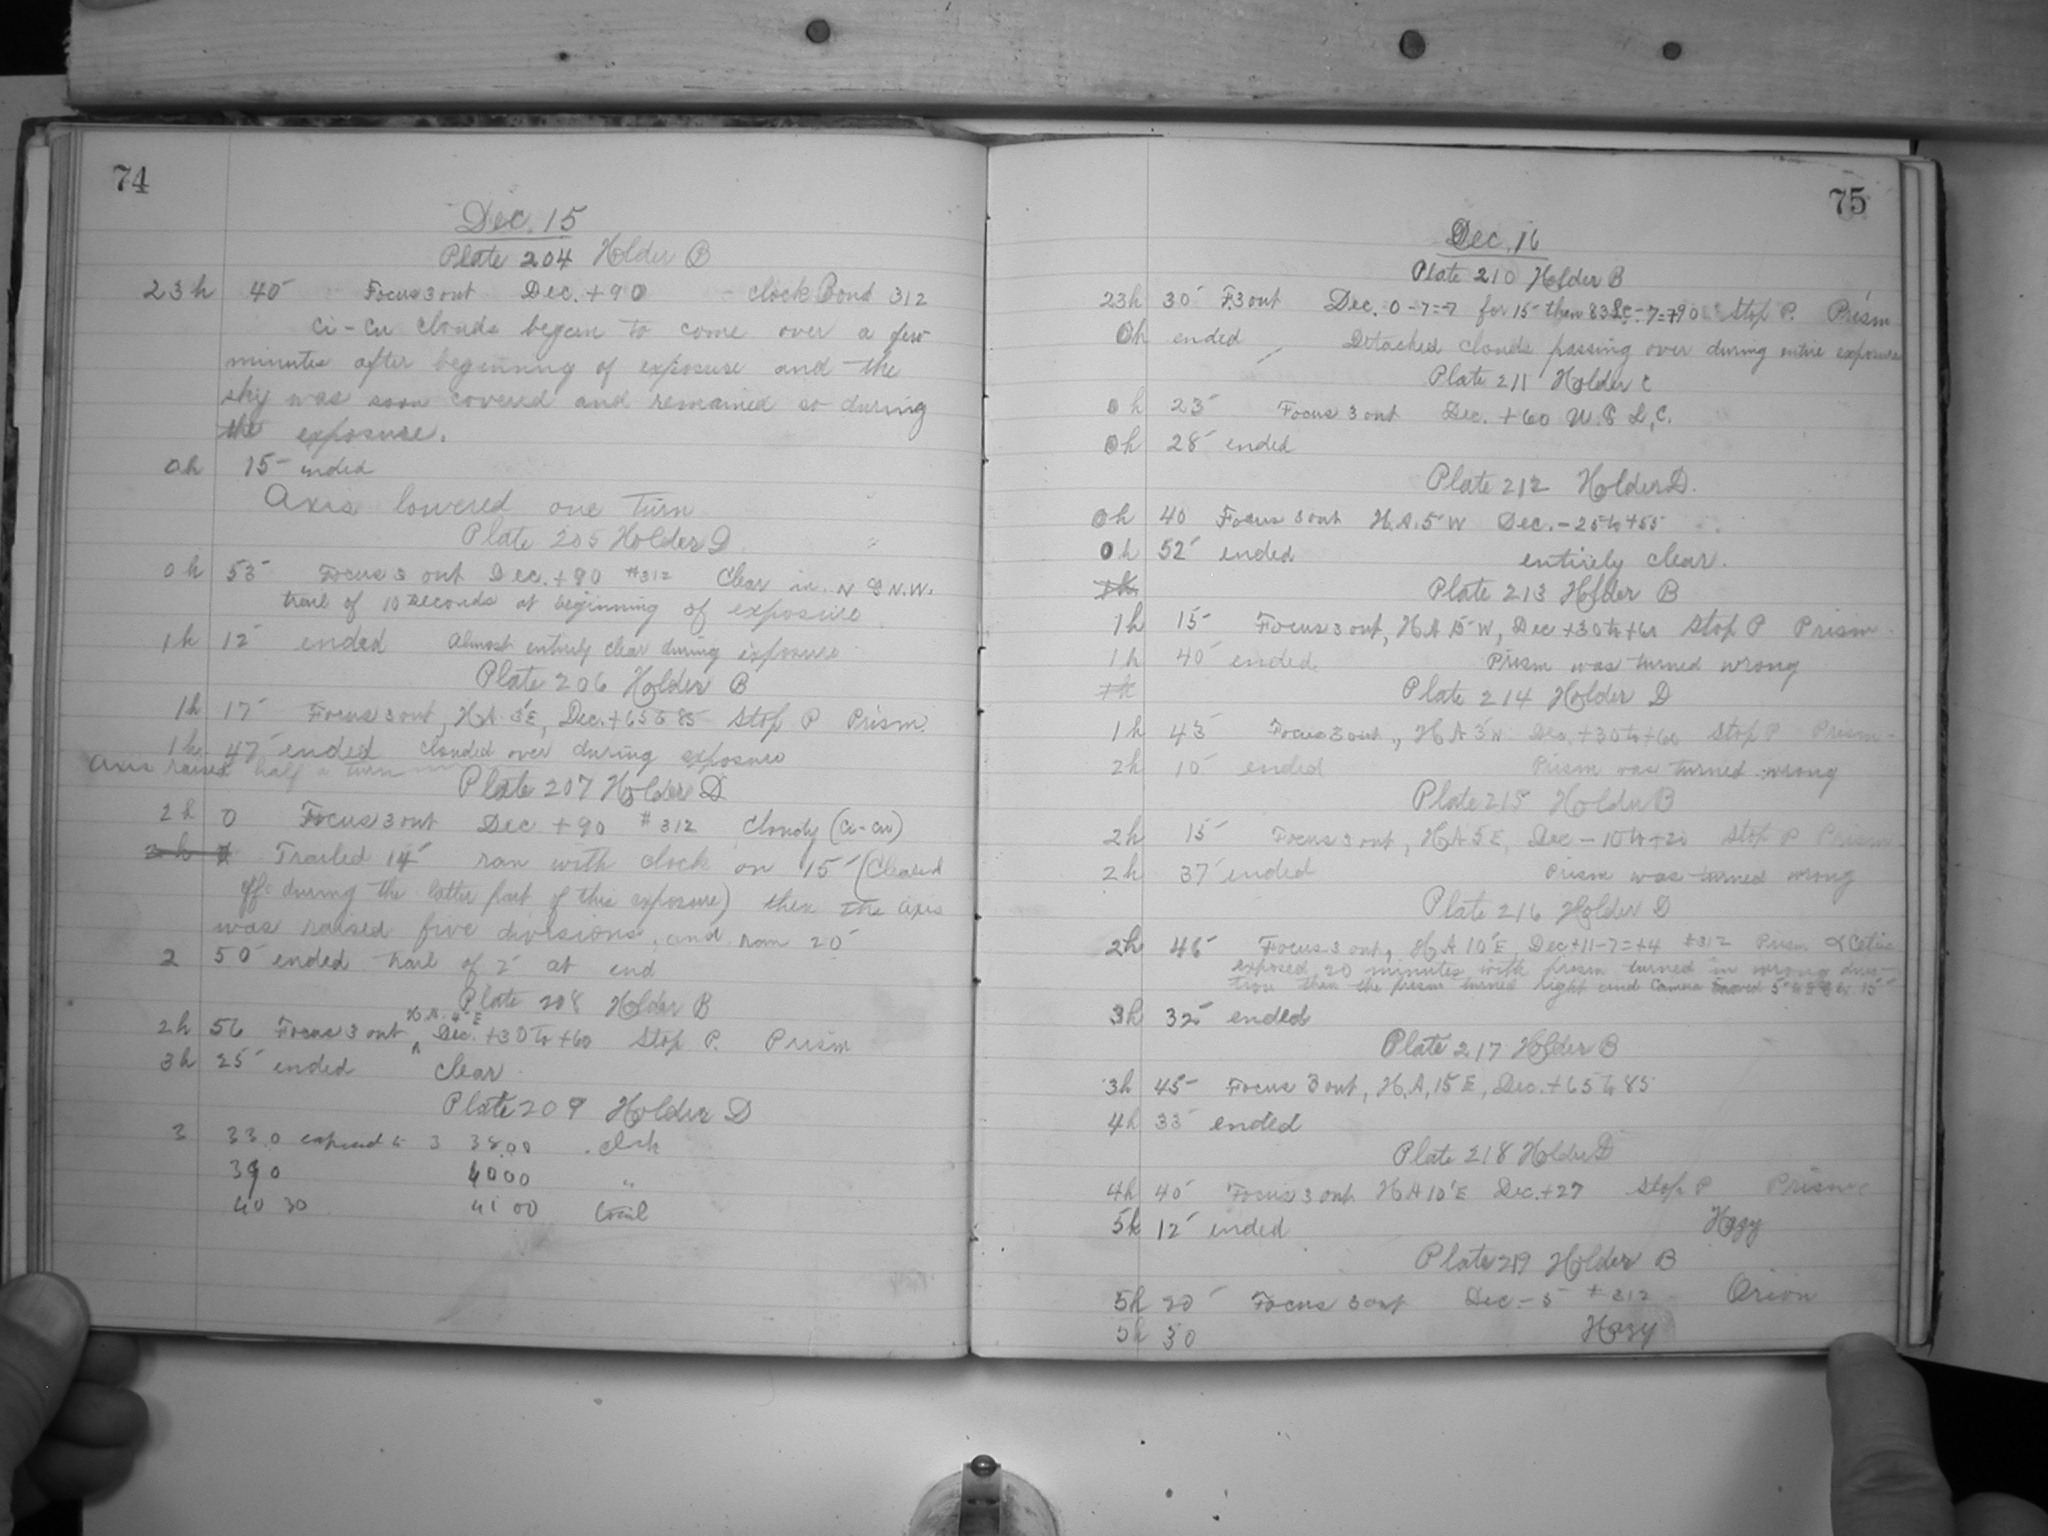 74
Dec. 15
Plate 204 Holder B
23h 40' Focus 3 out Dec. +90 - clock Bond 312
Ci-Cu clouds began to come over a few
minutes after beginning of exposure and the
sky was soon covered and remained so during
the exposure.
0h 15' ended
Axis lowered one turn
Plate 205 Holder D
0h 55' Focus 3 out Dec. +90 #312 Clear in N & N.W.
trail of 10 seconds at beginning of exposure
1h 12' ended Almost entirely clear during exposure
Plate 206 Holder B
1h 17' Focus 3 out, H.A. 5'E, Dec. +65 to 85 Stop P Prism
1h 47' ended Clouded over during exposure
Axis raised half a turn
Plate 207 Holder D
2h 0 Focus 3 out Dec +90 #312 Cloudy (Ci-Cu)
Trailed 14' ran with clock on 15' (Cleared
off during the latter part of this exposure) then the axis
was raised five divisions, and ran 20'
2 50' ended trail of 2' at end
Plate 208 Holder B
2h 56 Focus 3 out H.A. 4'E Dec. +30 to +60 Stop P. Prism
3h 25' ended clear
Plate 209 Holder D
3 33.0 exposed to 3 38.00 clock
39 0 40 00 "
40 30 41 00 trail
75
Dec. 16
Plate 210 Holder B
23h 30' F. 3 out Dec. 0-7=-7 for 15' then 83 -7=+90 Stop P. Prism
0h ended Detached clouds passing over during entire exposure
Plate 211 Holder C
0h 23' Focus 3 out Dec. +60 L.C.
0h 28' ended
Plate 212 Holder D.
0h 40 Focus 3 out H.A. 5'W Dec. -25 to +55
0h 52' ended entirely clear.
1h Plate 213 Holder B
1h 15' Focus 3 out, H A 15'W, Dec +30 to +60 Stop P Prism
1h 40' ended Prism was turned wrong
1h Plate 214 Holder D
1h 43' Focus 3 out, H A 3'W Dec. +30 to +60 Stop P Prism
2h 10' ended Prism was turned wrong
Plate 215 Holder B
2h 15' Focus 3 out, H A 5 E, Dec -10 to +20 Stop P Prism
2h 37' ended Prism was turned wrong
Plate 216 Holder D
2h 46' Focus 3 out, H A 10'E, Dec +11-7=+4 #312 Prism α Ceti
exposed 20 minutes with prism turned in wrong direc-
tion then the prism turned right and camera moved 15'
3h 32' ended
Plate 217 Holder B
3h 45' Focus 3 out, H.A. 15 E, Dec. +65 to 85
4h 33' ended
Plate 218 Holder D
4h 40' Focus 3 out H A 10'E Dec. +27 Stop P Prism
5h 12' ended Hazy
Plate 219 Holder B
5h 20' Focus 3 out Dec -5 #312 Orion
5h 30 Hazy